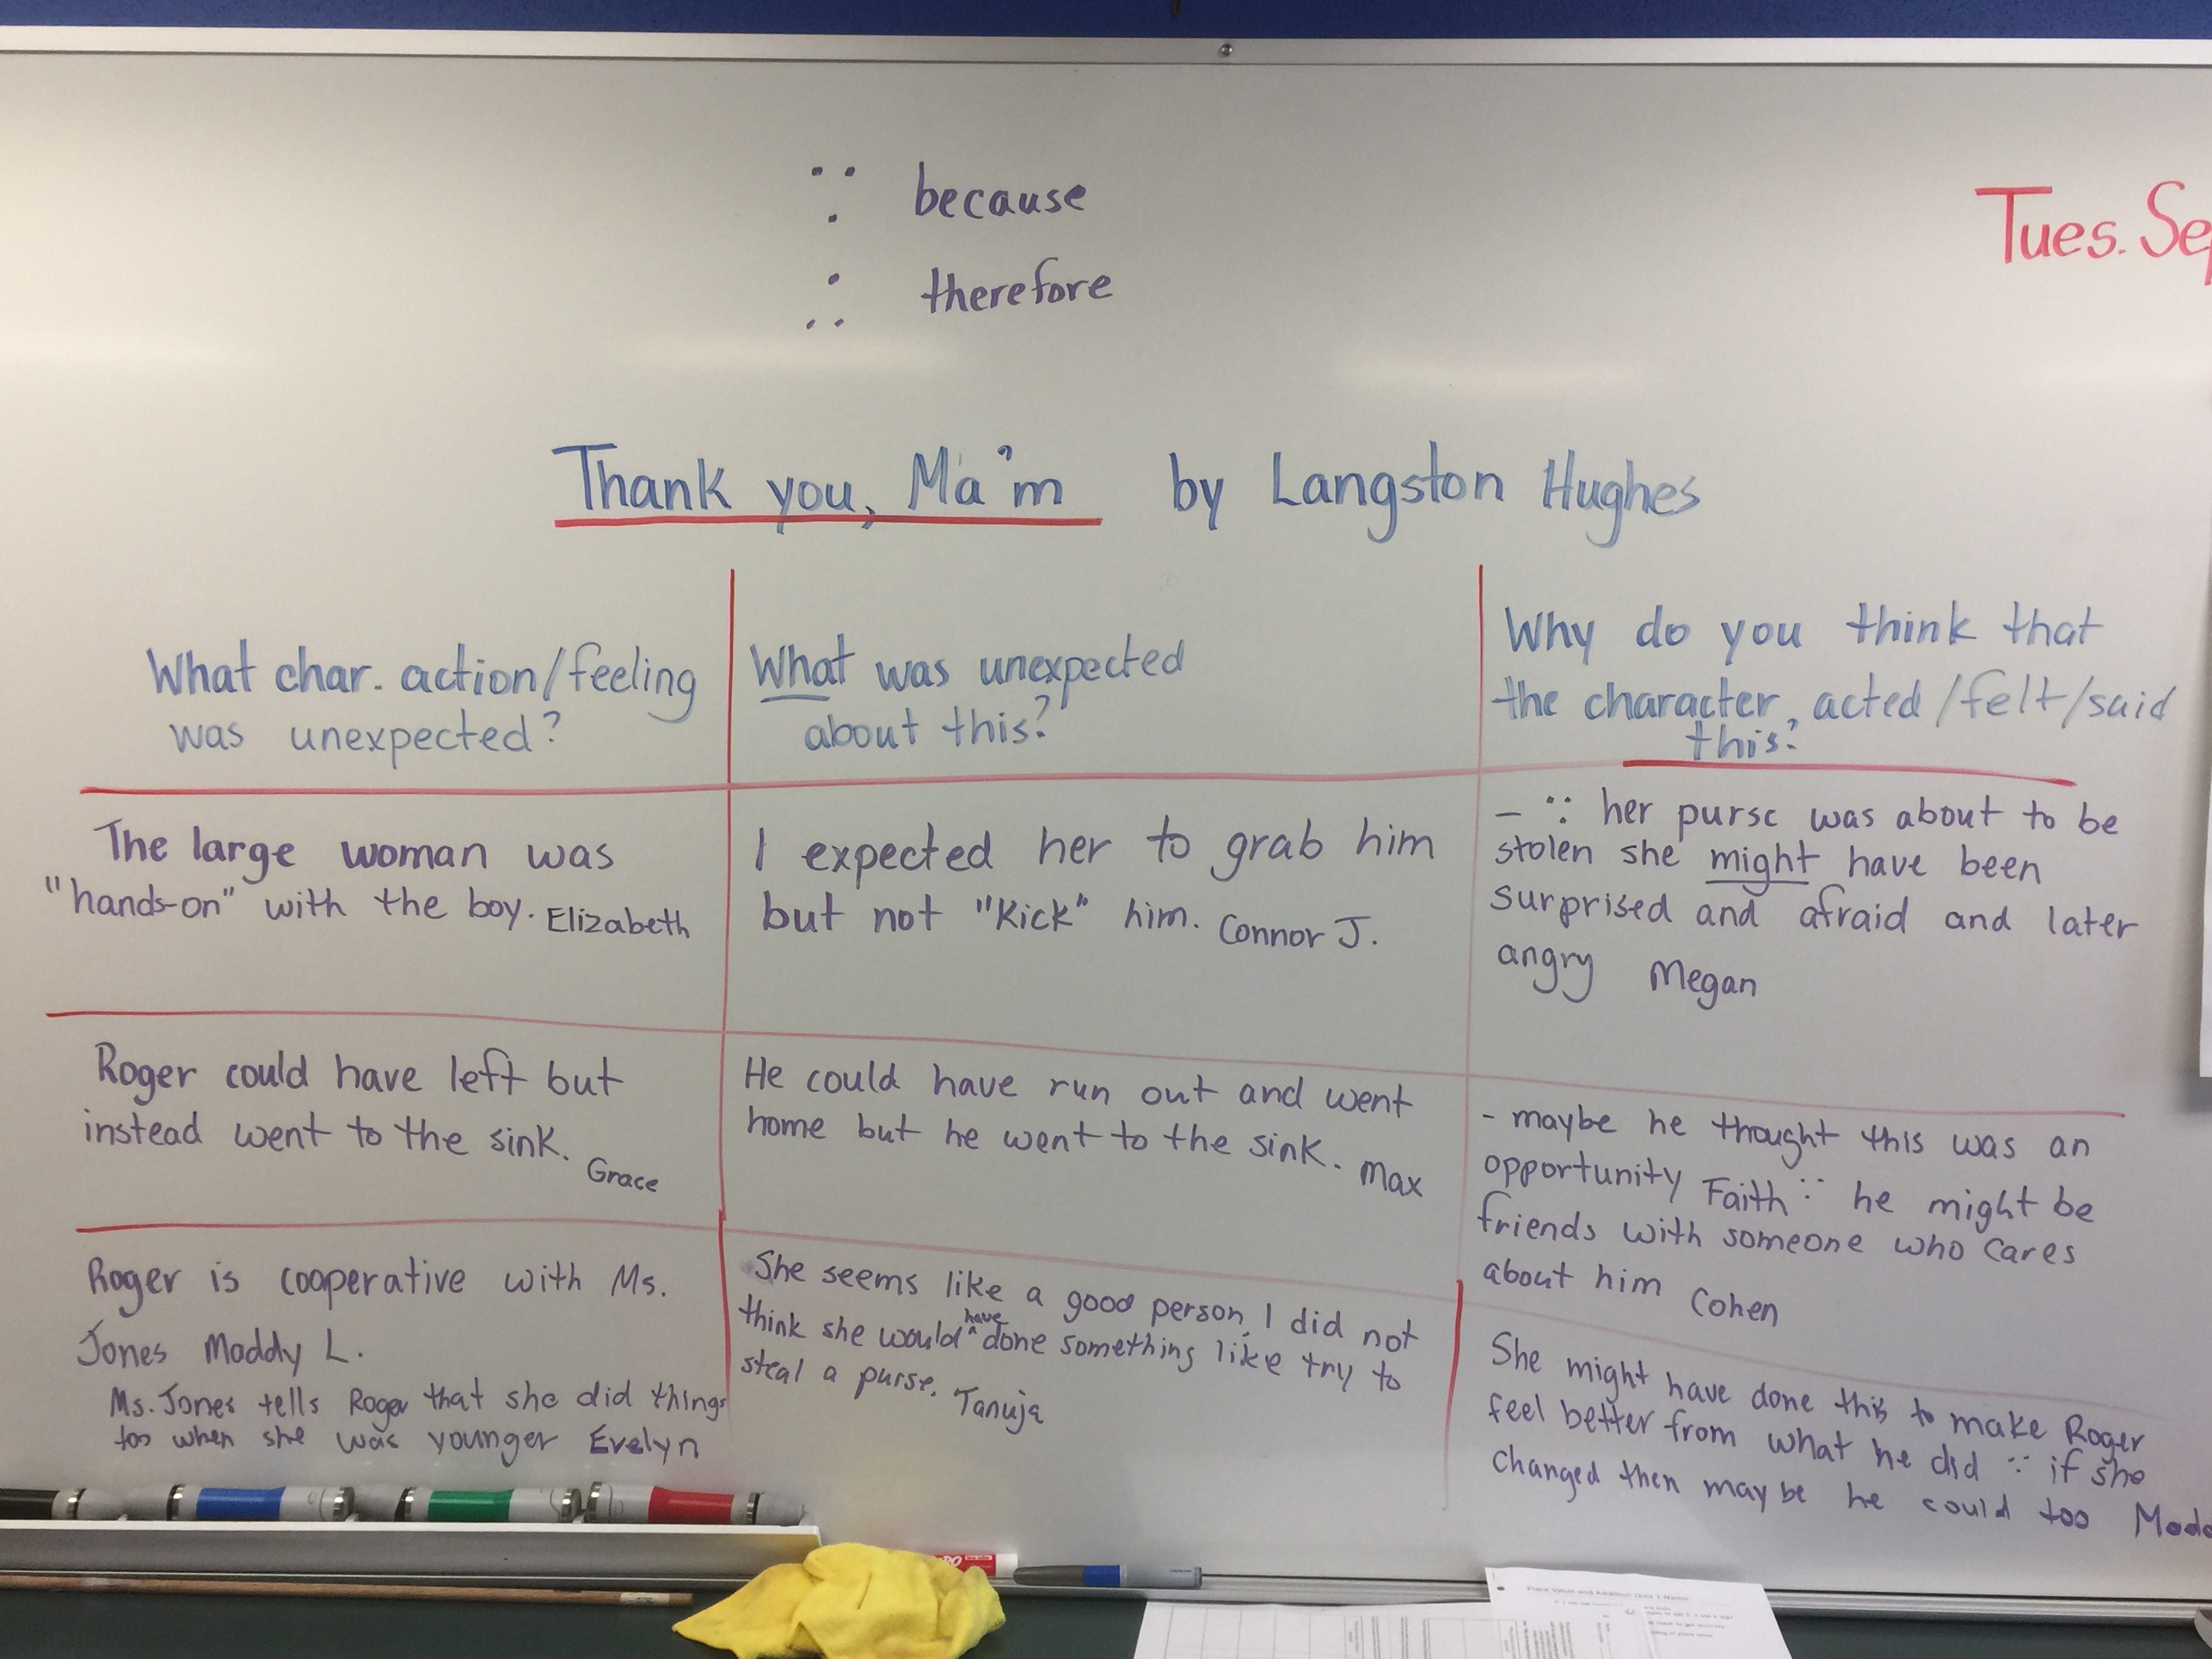 ∵ because
∴ therefore
Tues. Se
Thank you, Ma'm by Langston Hughes
What char. action/feeling
was unexpected?
What was unexpected
about this?
Why do you think that
the character acted/felt/said
this?
The large woman was
"hands-on" with the boy. Elizabeth
I expected her to grab him
but not "Kick" him. Connor J.
- ∵ her purse was about to be
stolen she might have been
surprised and afraid and later
angry Megan
Roger could have left but
instead went to the sink.
Grace
He could have run out and went
home but he went to the sink. Max
- maybe he thought this was an
opportunity Faith ∵ he might be
friends with someone who cares
about him Cohen
Roger is cooperative with Ms.
Jones Maddy L.
Ms. Jones tells Roger that she did things
too when she was younger Evelyn
She seems like a good person, I did not
think she would have done something like try to
steal a purse. Tanuja
She might have done this to make Roger
feel better from what he did ∵ if she
changed then maybe he could too Madd
Place Value and Addition Quiz 1 Name: